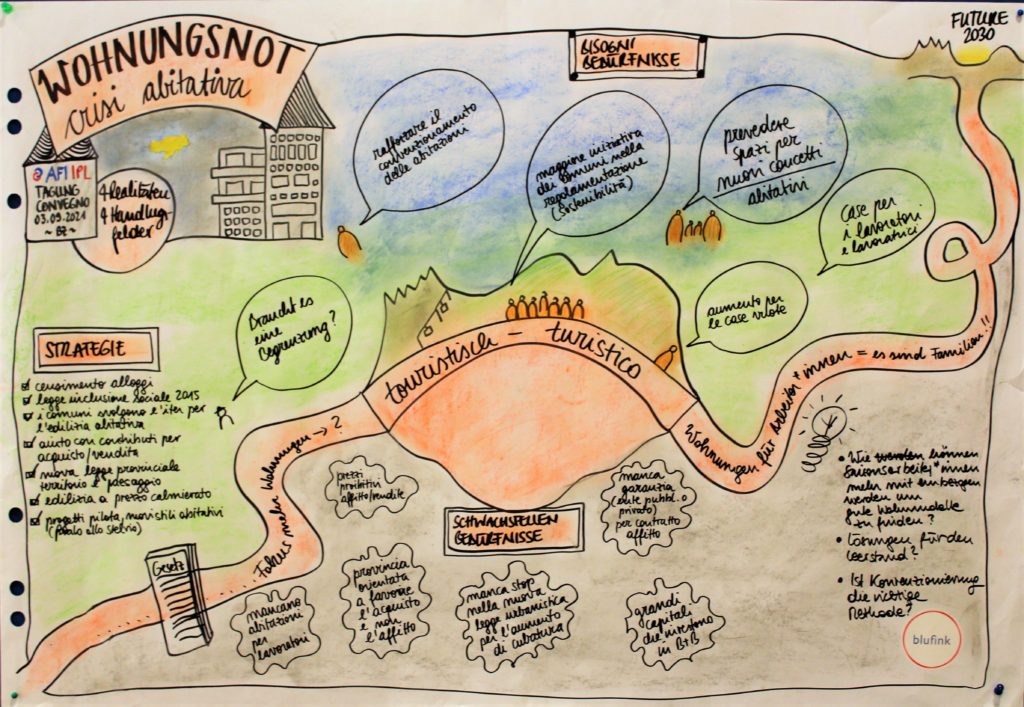 WOHNUNGSNOT
crisi abitativa
AFI IPL
TAGUNG
CONVEGNO
03.09.2021
~ BZ ~
4 Realitäten
4 Handlungs
felder
BISOGNI
BEDÜRFNISSE
FUTURE
2030
rafforzare il
convenzionamento
delle abitazioni
maggiore iniziativa
dei comuni nella
regolamentazione
(sostenibilità)
prevedere
spazi per
nuovi concetti
abitativi
case per
i lavoratori
e lavoratrici
aumento per
le case vuote
Braucht es
eine
Begrenzung?
STRATEGIE
censimento alloggi
legge inclusione sociale 2015
i comuni svolgono l'iter per
l'edilizia abitativa
aiuto con contributi per
acquisto/vendita
nuova legge provinciale
territorio e paesaggio
edilizia a prezzo calmierato
progetti pilota, nuovi stili abitativi
(Prato allo Stelvio)
Gesetz
Fokus mehr Wohnungen → ?
touristisch - turistico
Wohnungen für Arbeiter*innen = es sind Familien!!
prezzi
proibitivi
affitto/vendite
SCHWACHSTELLEN
BEDÜRFNISSE
manca
garanzia
(ente pubbl. o
privato)
per contratto
affitto
mancano
abitazioni
per
lavoratori
provincia
orientata
a favorire
l'acquisto
e non
l'affitto
manca stop
nella nuova
legge urbanistica
per l'aumento
di cubatura
grandi
capitali
che investono
in B+B
• Wie werden können
Saisonsarbeiter*innen
mehr mit einbezogen
werden um
gute Wohnmodelle
zu finden?
• Lösungen für den
Leerstand?
• Ist Konvenzionierung
die richtige
Methode?
blufink